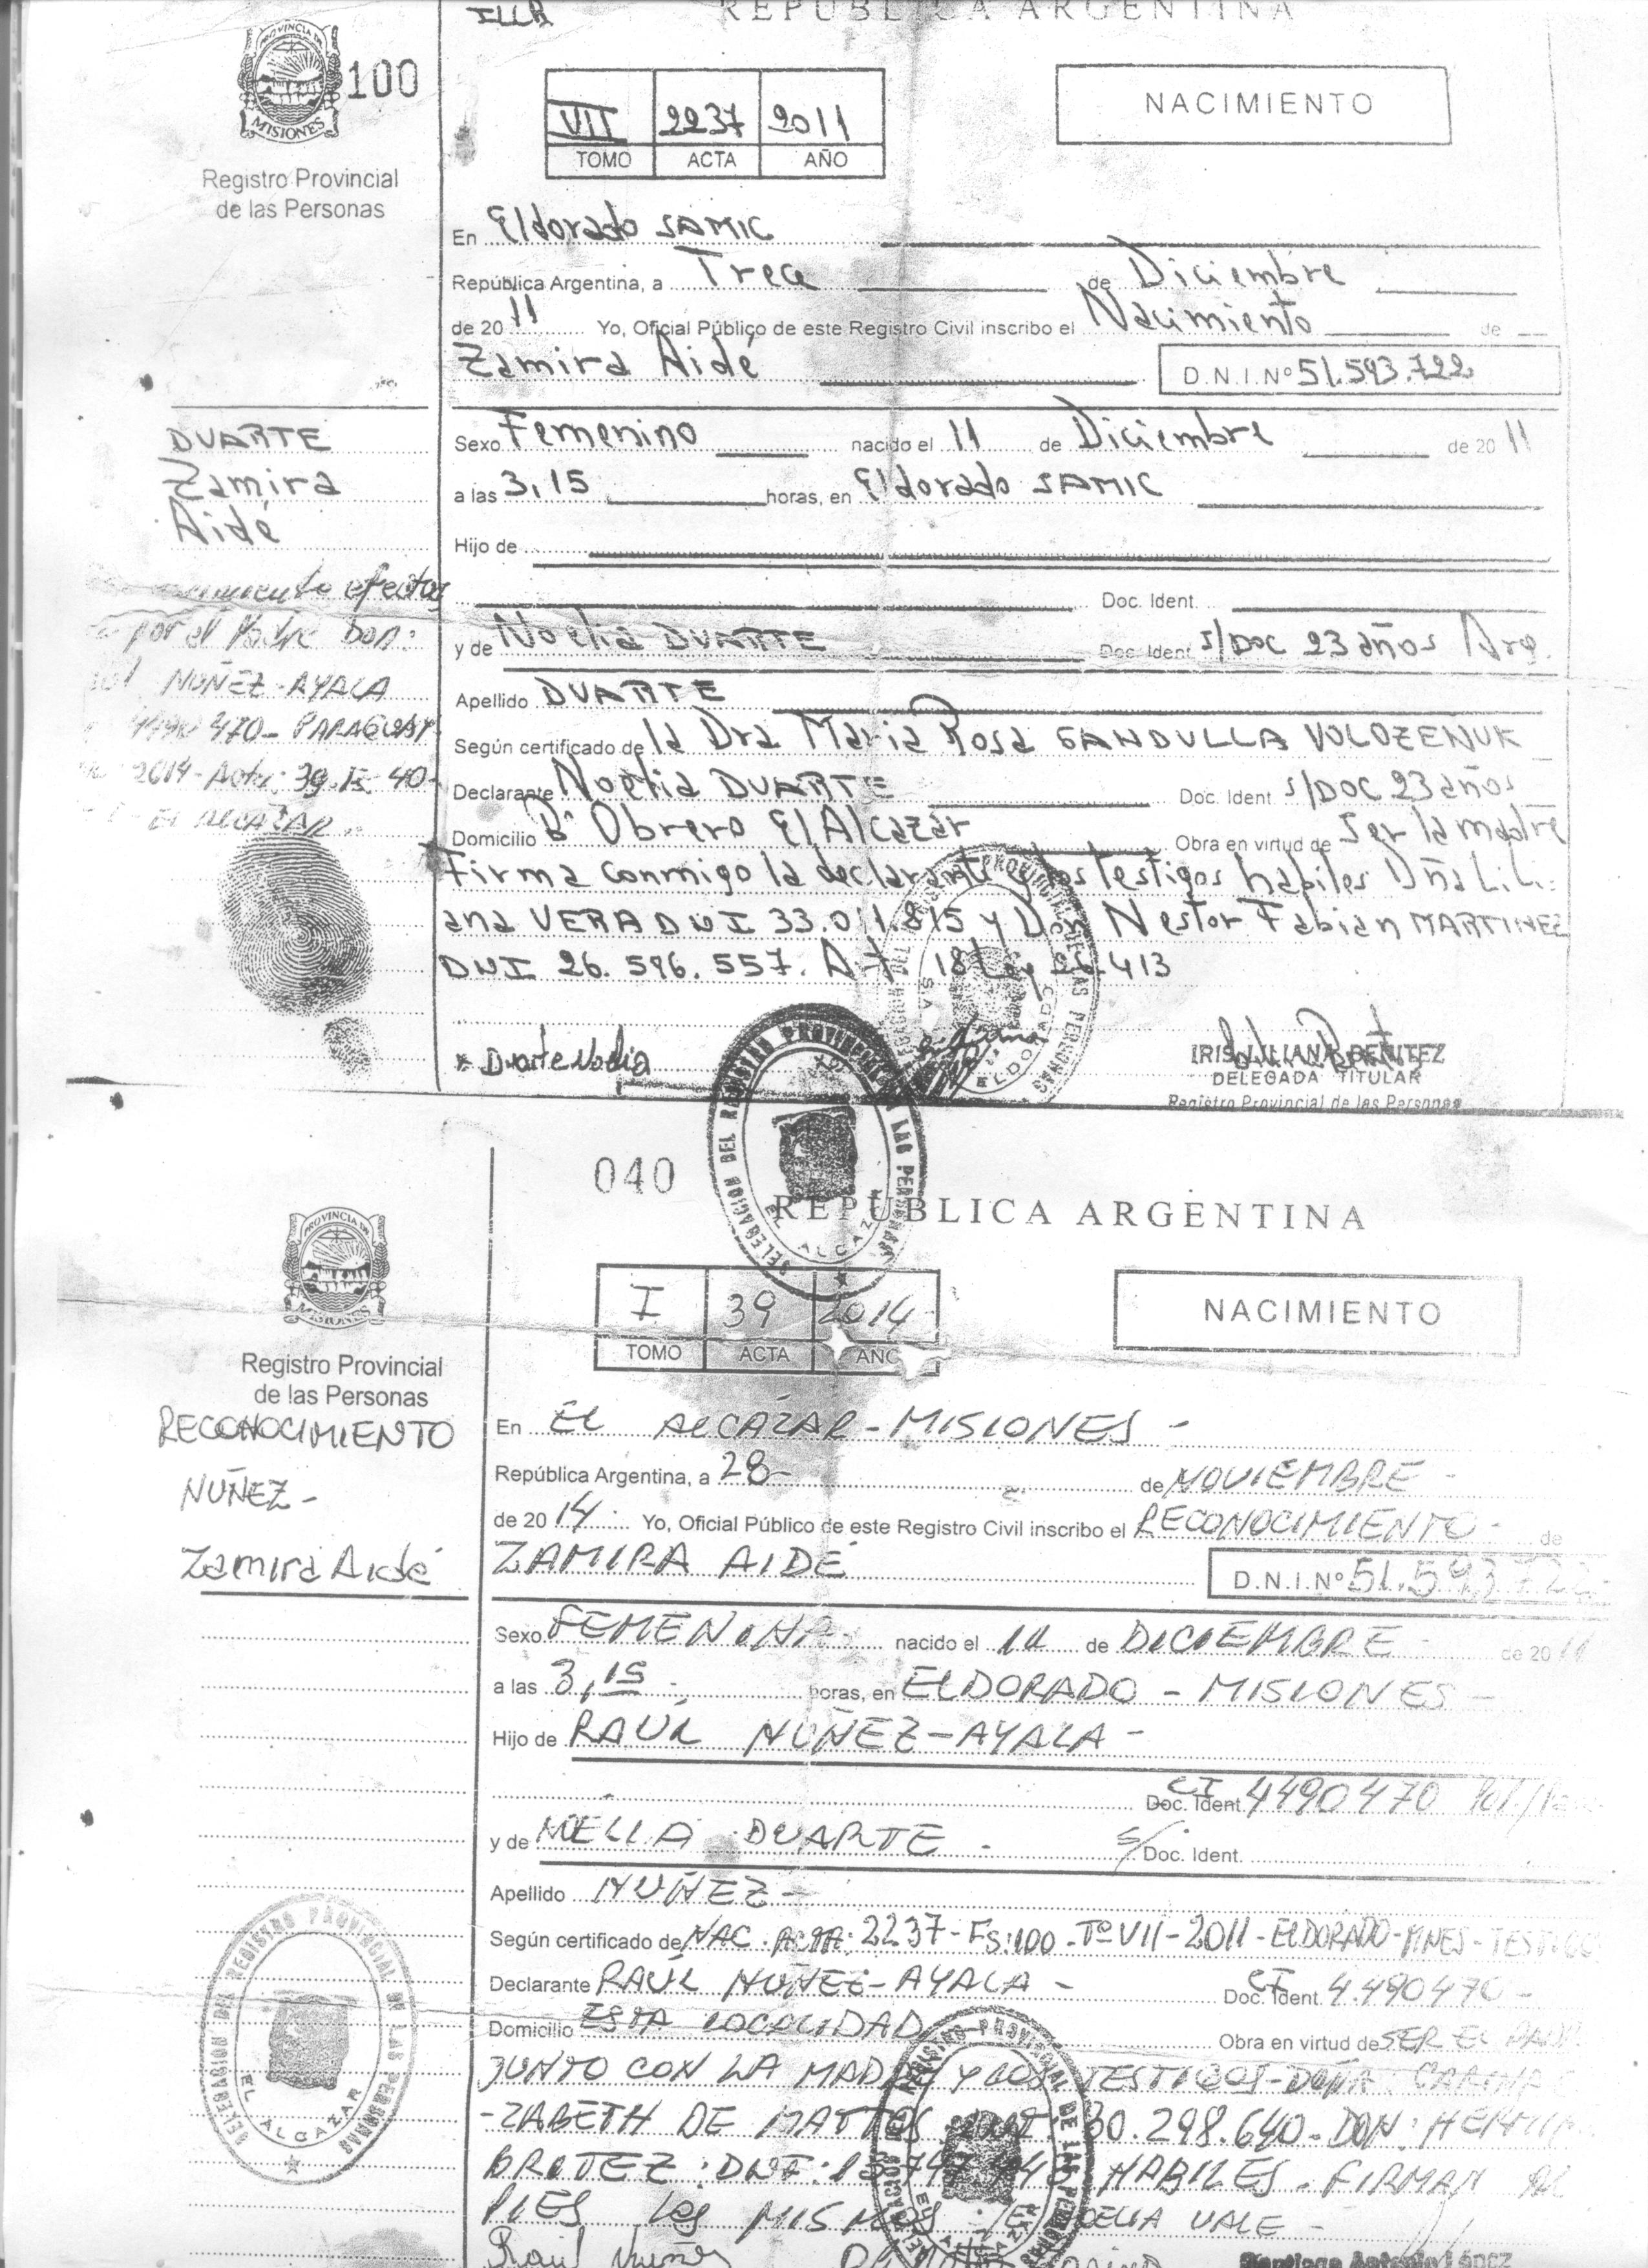 REPUBLICA ARGENTINA
PROVINCIA DE
MISIONES
100
Registro Provincial
de las Personas
VII 2237 2011
TOMO ACTA AÑO
NACIMIENTO
En Eldorado SAMIC
República Argentina, a Trece de Diciembre
de 20 11 Yo, Oficial Público de este Registro Civil inscribo el Nacimiento de
Zamira Aidé D.N.I.Nº 51.593.722
DUARTE
Zamira
Aidé
Sexo Femenino nacido el 11 de Diciembre de 20 11
a las 3,15 horas, en Eldorado SAMIC
Hijo de
Doc. Ident.
y de Noelia DUARTE Doc. Ident. s/DOC 23 años Arg.
Apellido DUARTE
Según certificado de la Dra Maria Rosa GANDULLA VOLOZENUK
Declarante Noelia DUARTE Doc. Ident. s/DOC 23 años
Domicilio Bº Obrero El Alcazar Obra en virtud de Ser la madre
Firma conmigo la declarante y los testigos habiles Dña Lili-
ana VERA DNI 33.011.815 y Don Nestor Fabian MARTINEZ
DNI 26.596.557. Art 18 Ley 26.413
efectua
por el Padre Don:
NUÑEZ-AYALA
470- PARAGUAY
2014- Acta: 39
EL ALCAZAR
Duarte Noelia
IRIS LILIANA BENITEZ
DELEGADA TITULAR
Registro Provincial de las Personas
DELEGACION DEL REGISTRO PROVINCIAL DE LAS PERSONAS
EL ALCAZAR
040
REPUBLICA ARGENTINA
PROVINCIA DE
MISIONES
Registro Provincial
de las Personas
I 39 2014
TOMO ACTA AÑO
NACIMIENTO
RECONOCIMIENTO
NUÑEZ-
Zamira Aidé
En EL ALCAZAR-MISIONES-
República Argentina, a 28- de NOVIEMBRE-
de 20 14 Yo, Oficial Público de este Registro Civil inscribo el RECONOCIMIENTO- de
ZAMIRA AIDE D.N.I.Nº 51.593722-
Sexo FEMENINA nacido el 11 de DICIEMBRE- de 20 11
a las 3,15 horas, en ELDORADO - MISIONES-
Hijo de RAUL NUÑEZ-AYALA-
CI Doc. Ident. 4490470
y de NOELIA DUARTE - S/ Doc. Ident.
Apellido NUÑEZ-
Según certificado de NAC. ACTA: 2237-Fs:100-Tº VII-2011-ELDORADO-MNES-
Declarante RAUL NUÑEZ-AYALA- CI Doc. Ident. 4.490470-
Domicilio ESTA LOCALIDAD Obra en virtud de SER EL
JUNTO CON LA MADRE Y LOS TESTIGOS-DOÑA: CARINA
-ZABETH DE MATTOS 30.298.640-DON:
HABILES. FIRMAN AL
PIES LOS MISMOS NOELIA VALE-
DELEGACION DEL REGISTRO PROVINCIAL DE LAS PERSONAS
EL ALCAZAR
Raul Nuñez
Santiago Antonio López